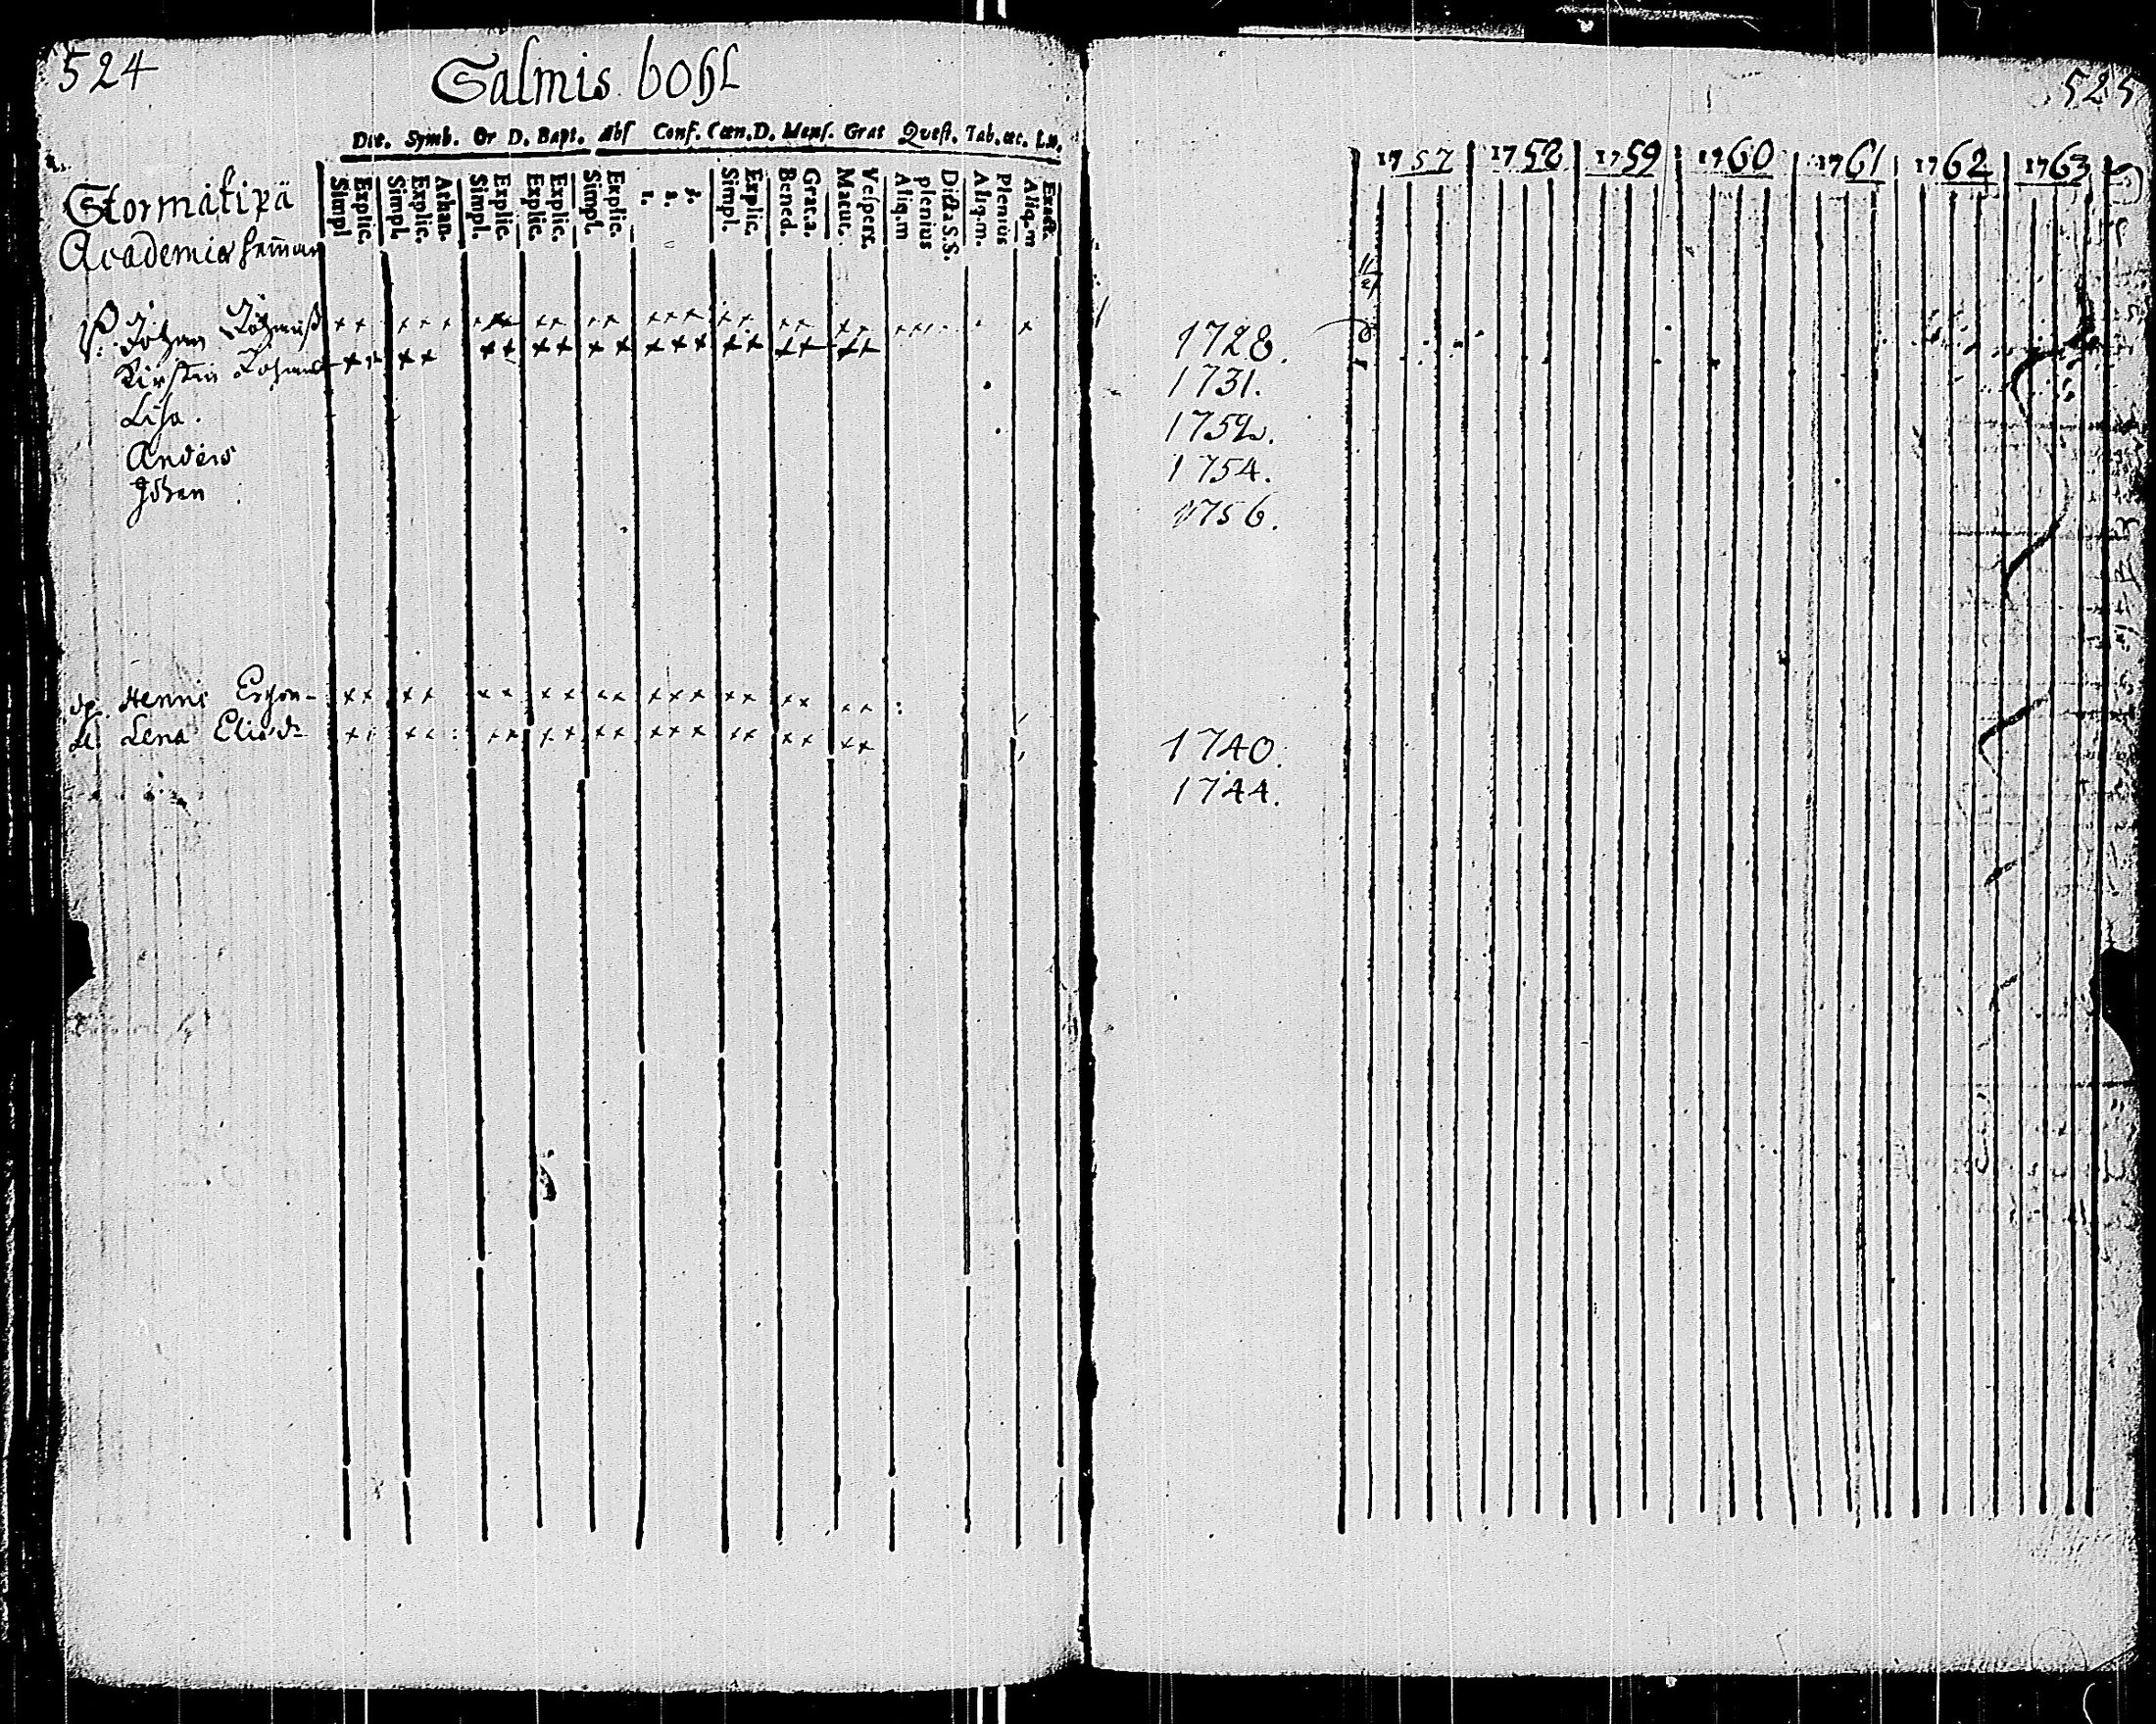 524
Salmis bohl
Dec. Symb. Or D. Bapt. Abs Conf. Cœn.D. Mens. Grat Quæst. Tab.œc. Lu.
Simpl Explic. Simpl. Explic. Athan. Simpl. Explic. Explic. Explic. Simpl. Explic. 1. 2. 3. Simpl. Explic. Bened. Grat.a. Matut. Vespert. Aliq.m plenius Dicta S.S. Aliq.m. Plenius Aliq.m Exact.
Stormåtipä
Academiæ hemman
Johan
Kirstin
Lisa.
Anders
Johan
Henric Ersson
Lena Eliæ dr
525
1757 1758 1759 1760 1761 1762 1763
1728.
1731.
1752.
1754.
1756.
1740.
1744.